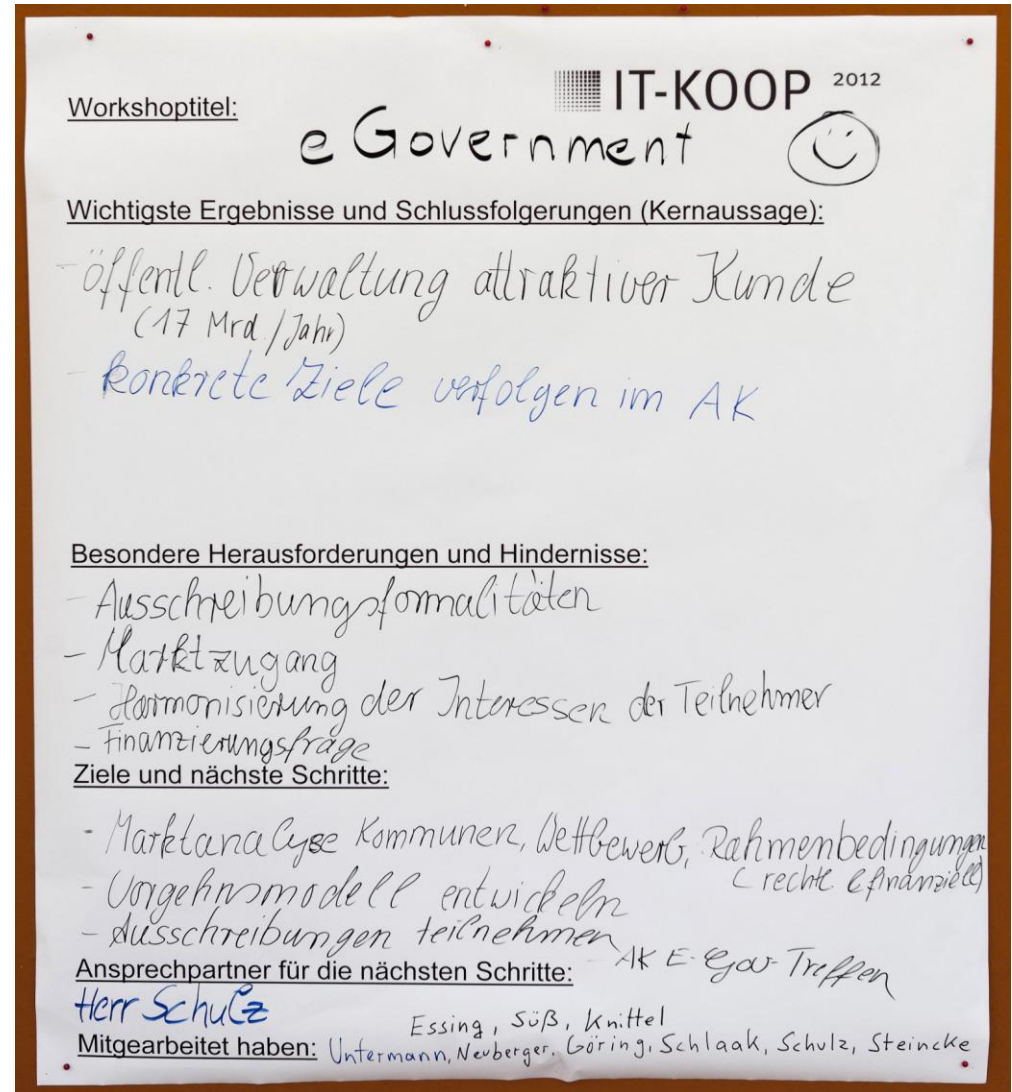 IT-KOOP 2012
Workshoptitel:
e Government
Wichtigste Ergebnisse und Schlussfolgerungen (Kernaussage):
- öffentl. Verwaltung attraktiver Kunde
(17 Mrd./Jahr)
- konkrete Ziele verfolgen im AK
Besondere Herausforderungen und Hindernisse:
- Ausschreibungsformalitäten
- Marktzugang
- Harmonisierung der Interessen der Teilnehmer
- Finanzierungsfrage
Ziele und nächste Schritte:
- Marktanalyse Kommunen, Wettbewerb, Rahmenbedingungen
(rechtl & finanziell)
- Vorgehnsmodell entwickeln
- Ausschreibungen teilnehmen
- AK E-Gov-Treffen
Ansprechpartner für die nächsten Schritte:
Herr Schulz
Essing, Süß, Knittel
Mitgearbeitet haben: Untermann, Neuberger, Göring, Schlaak, Schulz, Steincke